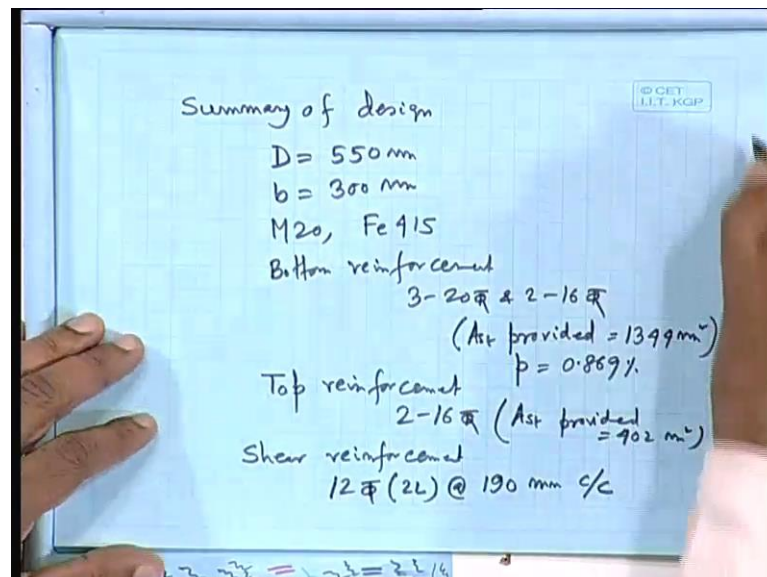 Summary of design
© CET
I.I.T. KGP
D = 550 mm
b = 300 mm
M20, Fe 415
Bottom reinforcement
3-20 Φ & 2-16 Φ
(Ast provided = 1344 mm²)
p = 0.869%
Top reinforcemet
2-16 Φ (Ast provided
= 402 m²)
Shear reinforcement
12 Φ (2L) @ 190 mm c/c